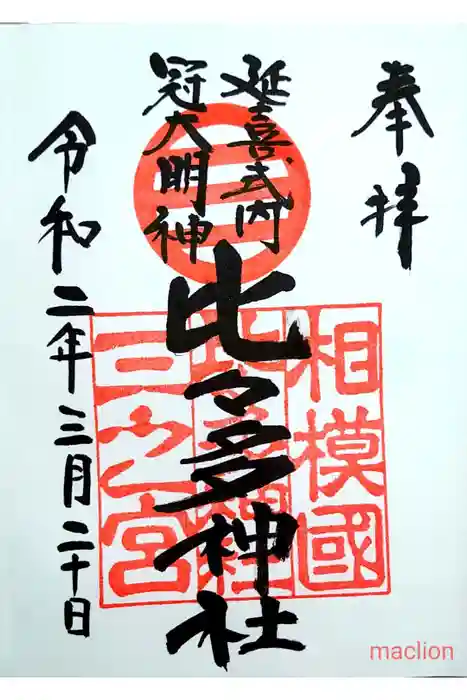 奉拝
延喜式内
冠大明神
比々多神社
令和二年三月二十日
相模國
三之宮
maclion